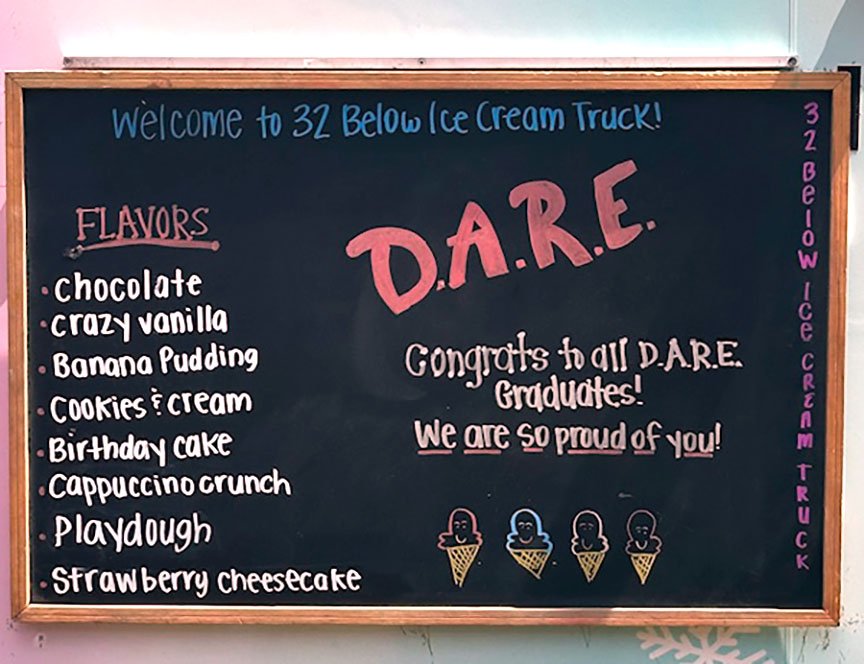 Welcome to 32 Below Ice Cream Truck!
FLAVORS
• chocolate
• crazy vanilla
• Banana Pudding
• Cookies & cream
• Birthday cake
• Cappuccino crunch
• Playdough
• Strawberry cheesecake
D.A.R.E.
Congrats to all D.A.R.E.
Graduates!
We are so proud of you!
32 Below ICE CREAM TRUCK